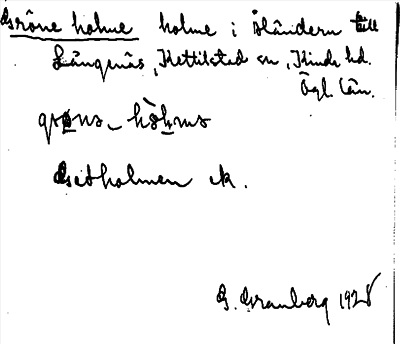 Gröne holme holme i Åländern till
Långenäs, Kettilstad sn, Kinda hd.
Ögl. län.
Getholmen ek.
G. Granberg 1928